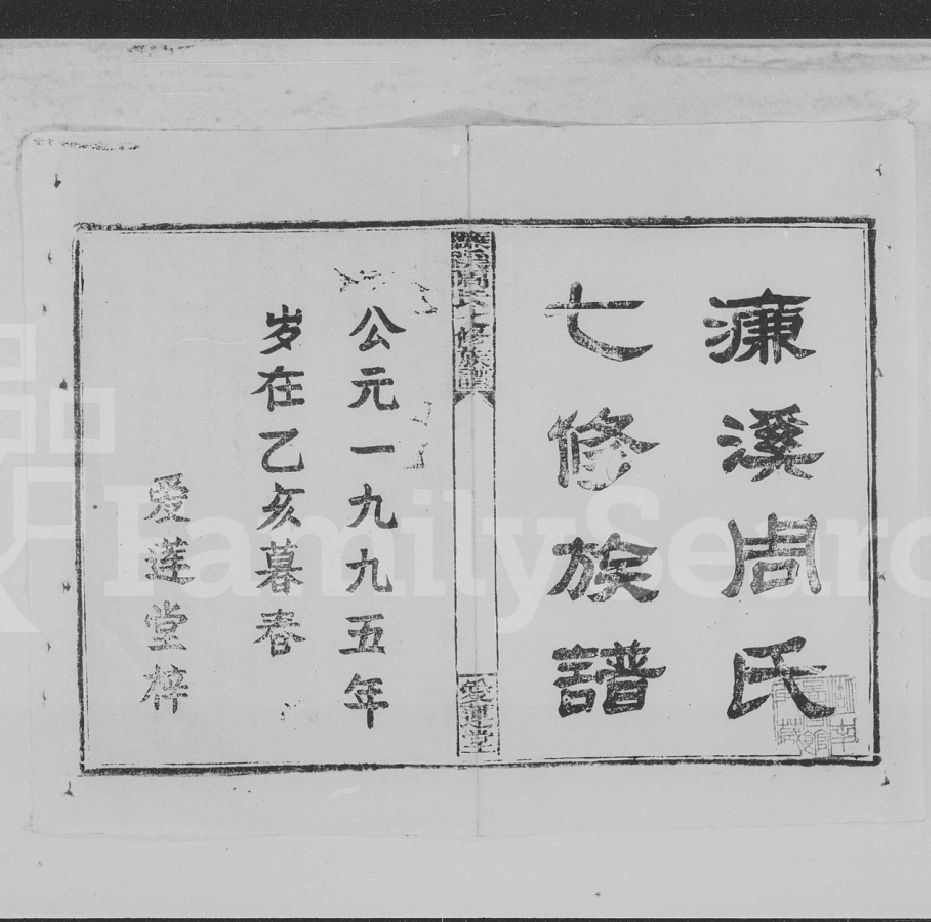 濂溪周氏
七修族譜
濂溪周氏七修族譜
愛蓮堂
公元一九九五年
岁在乙亥暮春
爱莲堂梓
FamilySearc